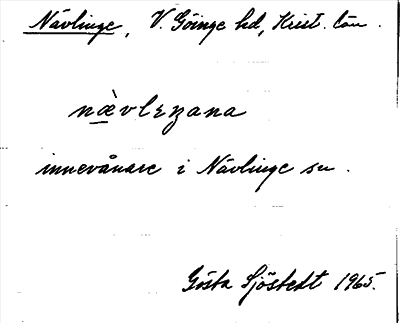 Nävlinge, V. Göinge hd, Krist. län.
nævlɛŋana
innevånare i Nävlinge sn.
Gösta Sjöstedt 1965.